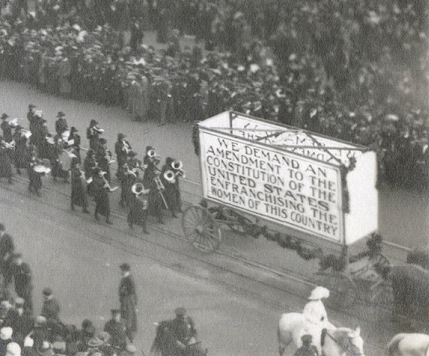 WE DEMAND AN
AMENDMENT TO THE
CONSTITUTION OF THE
UNITED STATES
ENFRANCHISING THE
WOMEN OF THIS COUNTRY